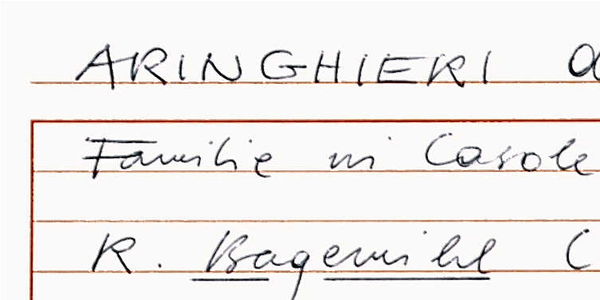 ARINGHIERI
Familie in Casole
R. Bagemihl C